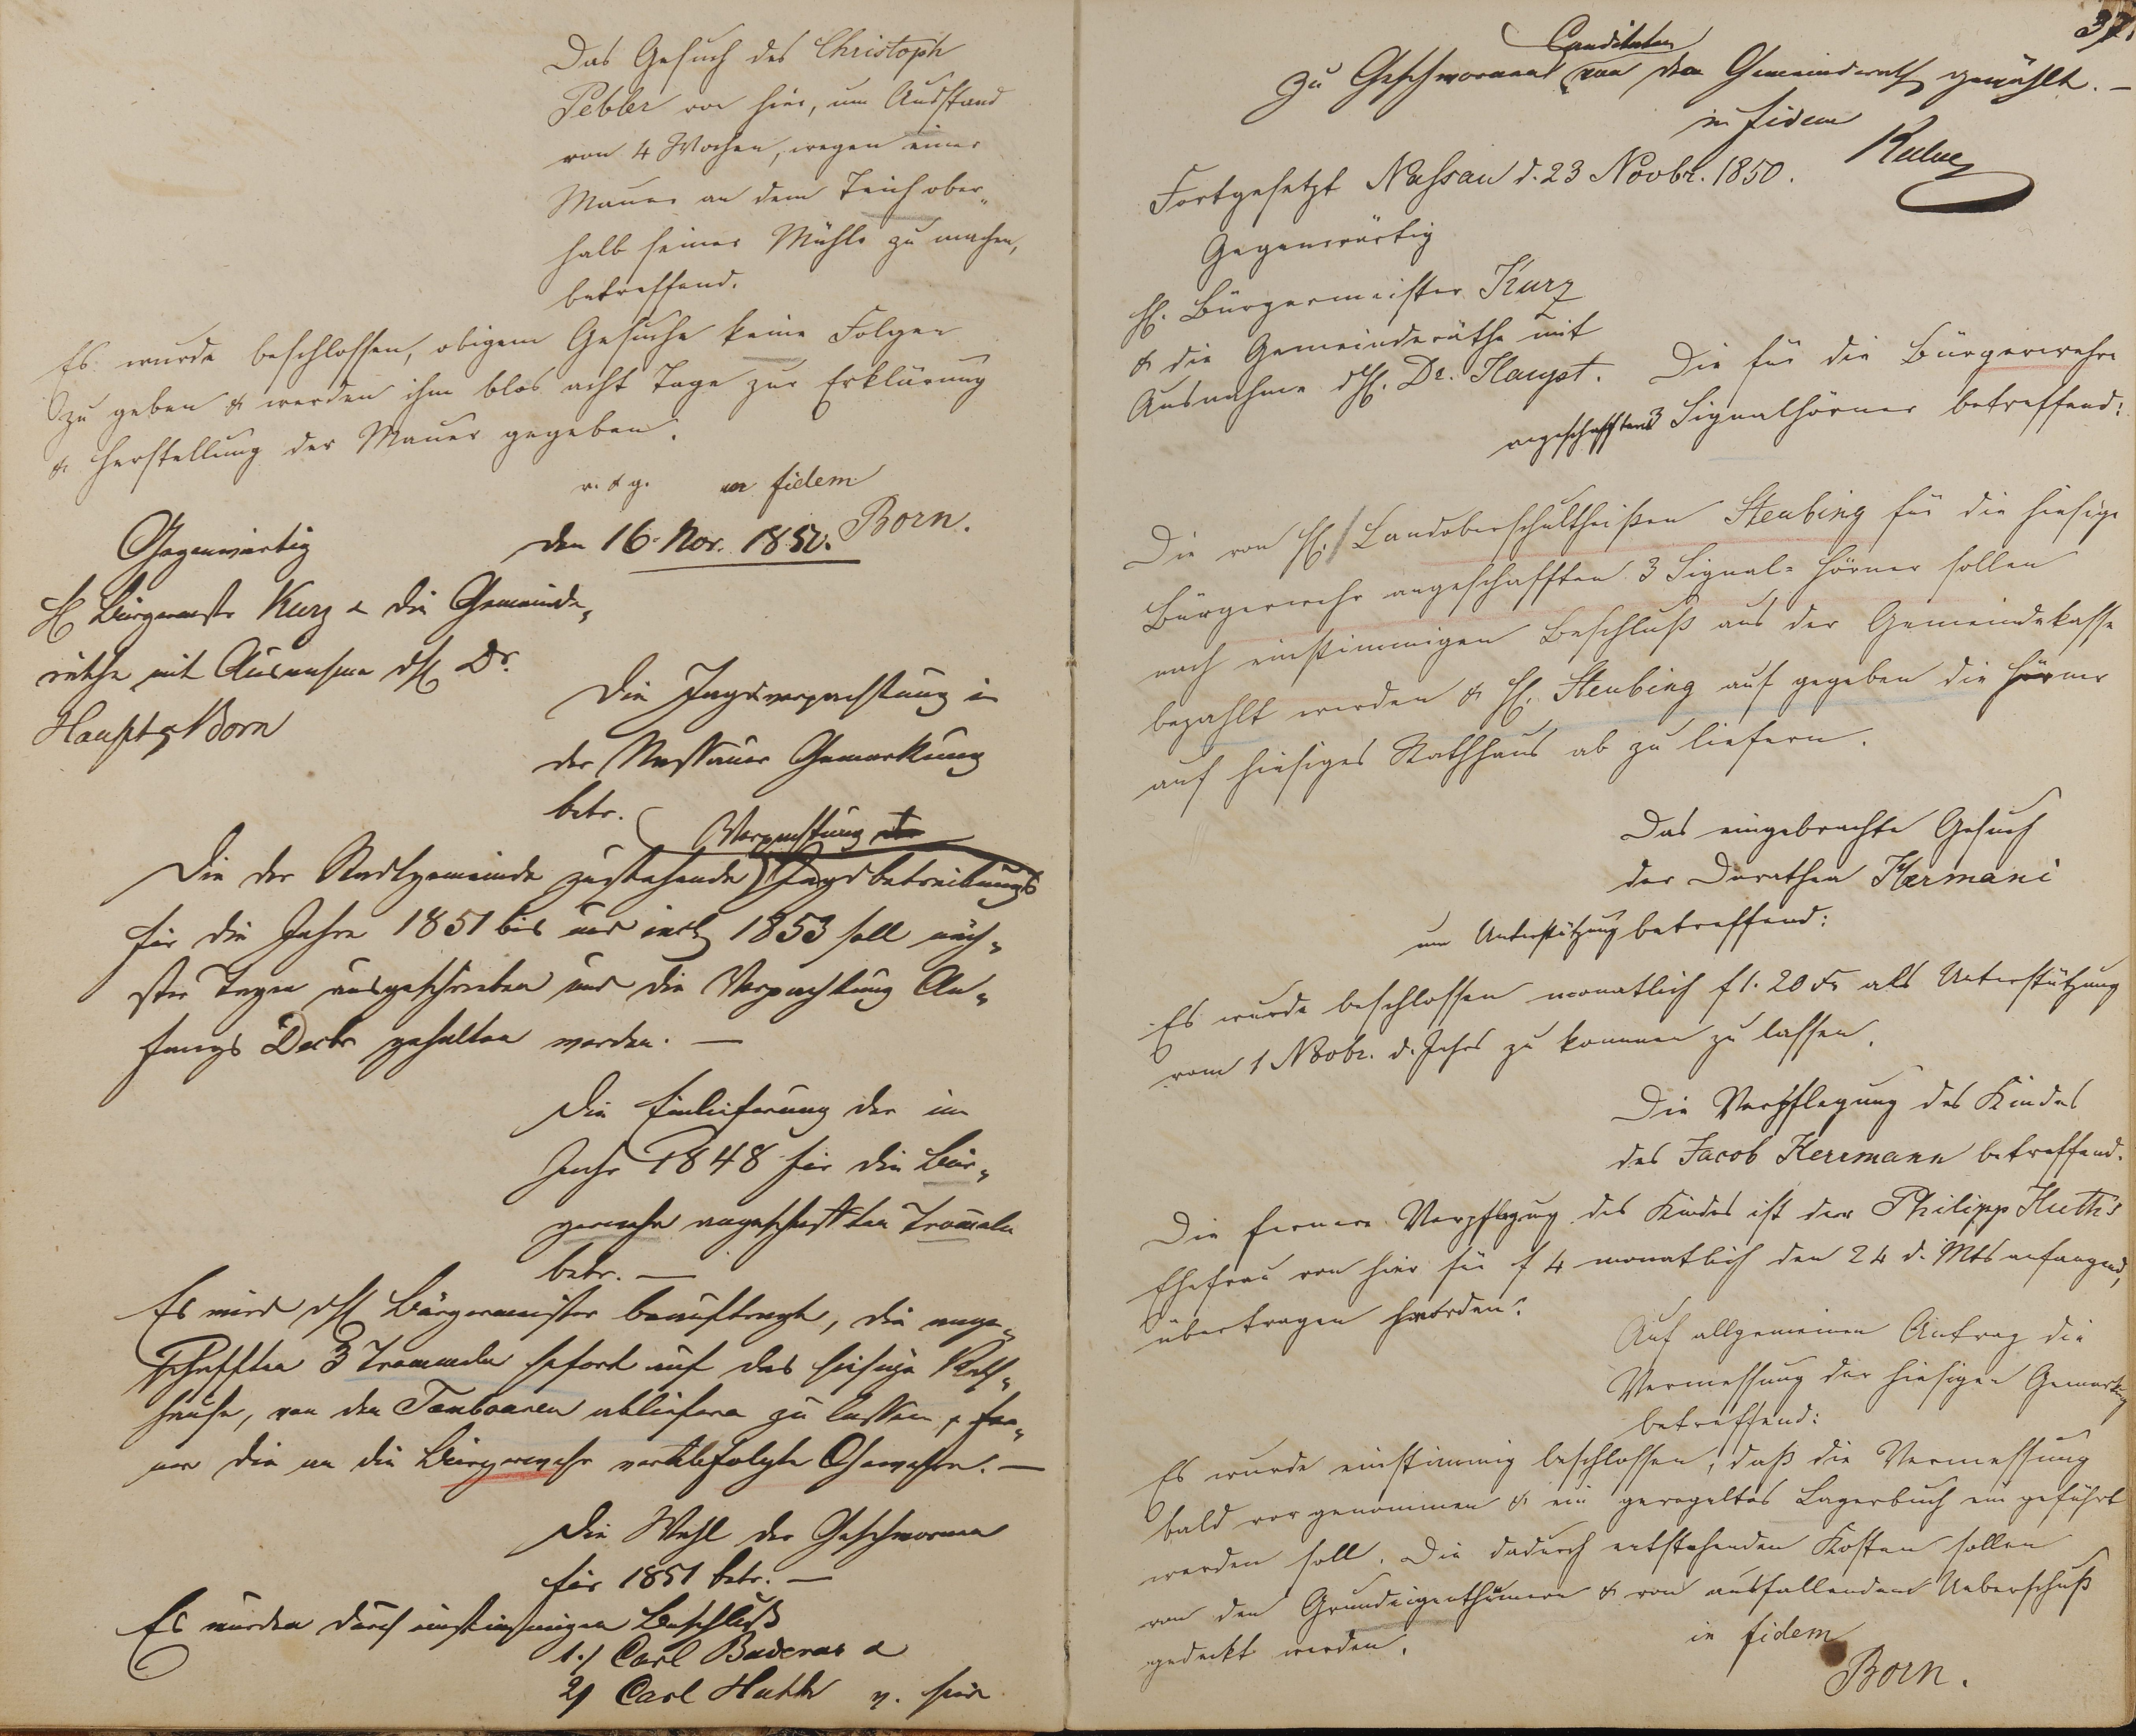 Das Gesuch des Christoph
Pebler von hier, um Ausstand
von 4 Wochen, wegen einer
Mauer an dem Teich ober„
halb seiner Mühle zu machen,
betreffend.
Es wurde beschlossen, obigem Gesuche keine Folgen
zu geben & werden ihm blos acht Tage zur Erklärung
& Herstellung der Mauer gegeben.
v. & g. in fidem
Born.
den 16. Nov. 1850.
Gegenwärtig
H Bürgermstr Kurz & die Gemeinde„
räthe mit Ausnahme des H Dr.
Haupt & Born
Die Jagdverpachtung in
der Nassauer Gemarkung
betr.
Verpachtung der
Die der Stadtgemeinde zustehende Jagdbetreibungs
für die Jahre 1851 bis und incl 1853 soll näch„
ster Tagen ausgeschrieben und die Verpachtung An„
fangs Decbr gehalten werden. —
Die Einlieferung der im
Jahr 1848 für die Bür„
gerwehr angeschafften Trommeln
betr. —
Es wird H Bürgermeister beauftragt, die ange„
schafften 3 Trommeln sofort auf das hiesige Rath„
hause, von den Tambouren abliefern zu lassen, & fer„
ner die an die Bürgerwehr verabfolgte Gewehre. —
Die Wahl der Geschworenen
für 1851 betr. —
Es wurden durch einstimmigen Beschluß
1./ Carl Buderus &
2/ Carl Huth v. hier
37.
Canditaten
zu Geschworenen von dem Gemeinderath gewählt. —
in fidem
Fortgesetzt Nassau d. 23 Novbr. 1850.
Gegenwärtig
H. Bürgermeister Kurz
& die Gemeinderäthe mit
Ausnahme d H. Dr. Haupt.
Die für die Bürgerwehr
angeschafften 3 Signalhörner betreffend:
Die von H. Landoberschultheißen Steubing für die hiesige
Bürgerwehr angeschafften 3 Signal=Hörner sollen
nach einstimmigen Beschluß aus der Gemeindekasse
bezahlt werden & H. Steubing auf gegeben die Hörner
auf hiesiges Rathhaus ab zu liefern.
Das eingebrachte Gesuch
der Dorathea Hermani
um Unterstützung betreffend:
Es wurde beschlossen monatlich f 1. 20 xr als Unterstützung
vom 1 Novbr. d. Jahrs zu kommen zu lassen.
Die Verpflegung des Kindes
des Jacob Herrmann betreffend.
Die fernere Verpflegung des Kindes ist der Philipp Huth's
Ehefrau von hier für f 4 monatlich den 24 d. Mts anfangend,
übertragen worden.
Auf allgemeinen Antrag die
Vermessung der hiesigen Gemarkung
betreffend:
Es wurde einstimmig beschlossen, daß die Vermessung
bald vor genommen & ein geregeltes Lagerbuch ein geführt
werden soll. Die dadurch entstehenden Kosten sollen
von den Grundeigenthümern & von ausfallendem Ueberschuß
gedeckt werden.
in fidem
Born.